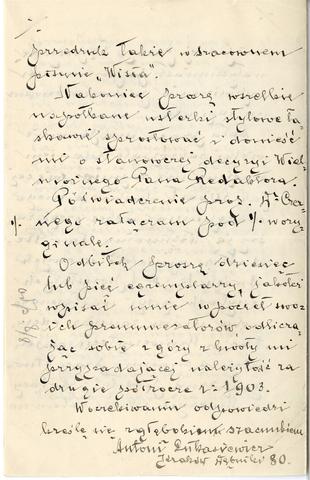 przedruk także w szacownem
piśmie „Wisła”.
Nakoniec proszę wszelkie
napotkane usterki stylowe ła-
skawie sprostować i donieść
mi o stanowczej decyzyi Wiel-
możnego Pana Redaktora.
Poświadczenie prof. Cza-
nego załączam pod ·/. w ory-
·/.
ginale.
Odbitek proszę dziesięć
lub pięć egzemplarzy, jakoteż
wpisać mnie w poczet swo-
ich prenumeratorów, odlicza-
jąc sobie z góry z kwoty mi
przypadającej należytość za
drugie półrocze r. 1903.
W oczekiwaniu odpowiedzi
kreślę się z głębokim szacunkiem
Antoni Łukasiewicz
Kraków Dębniki 80.